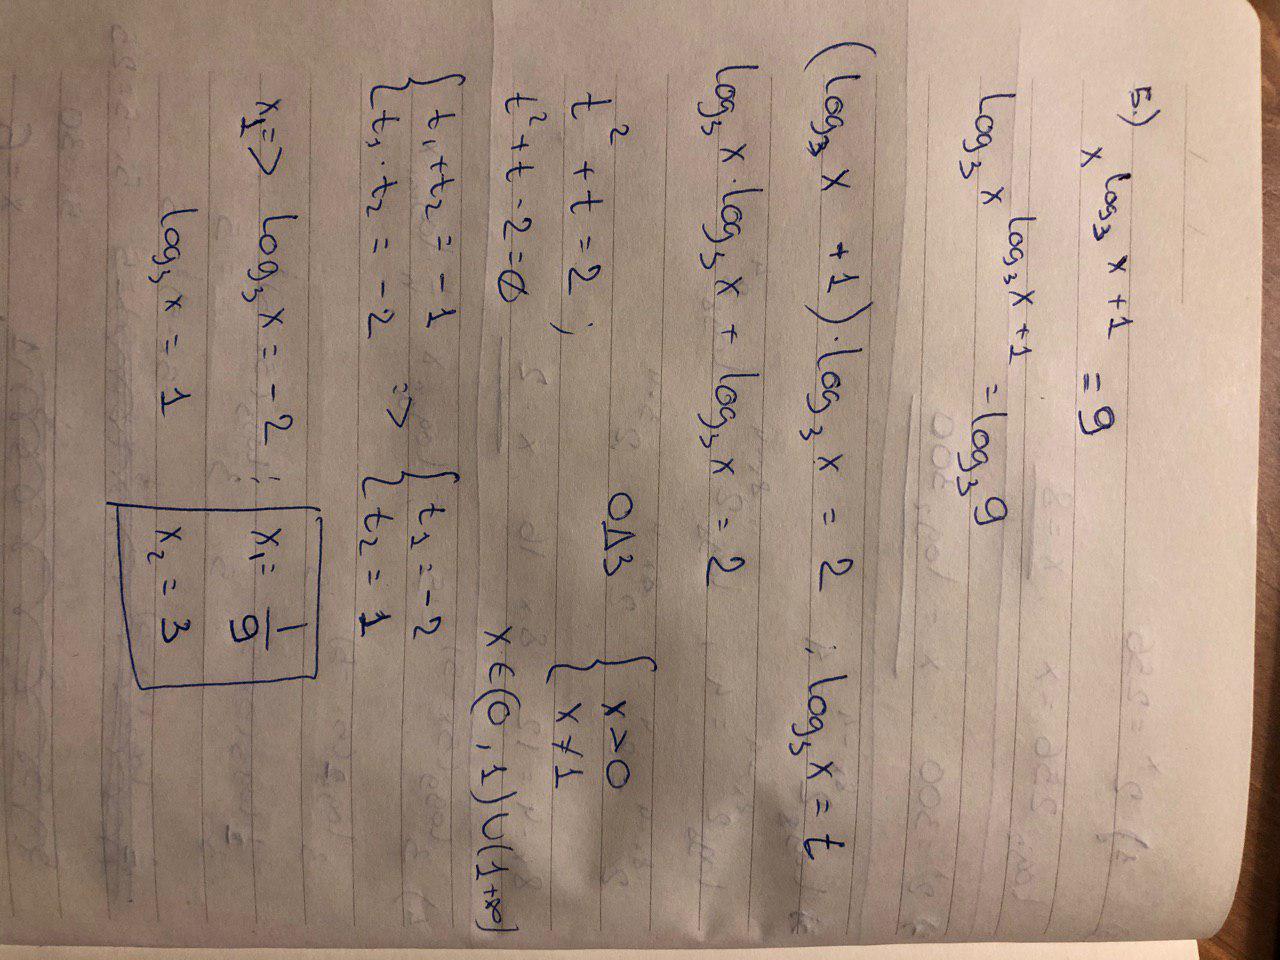 5.) x^(log₃ x + 1) = 9
log₃ x^(log₃ x + 1) = log₃ 9
(log₃ x + 1) · log₃ x = 2 ; log₃ x = t
log₃ x · log₃ x + log₃ x = 2
t² + t = 2 ;
ОДЗ { x > 0
x ≠ 1
t² + t - 2 = 0
x ∈ (0, 1) ∪ (1 +∞)
{ t₁ + t₂ = -1
t₁ · t₂ = -2 => { t₁ = -2
t₂ = 1
x₁ => log₃ x = -2 ; x₁ = 1/9
log₃ x = 1 x₂ = 3